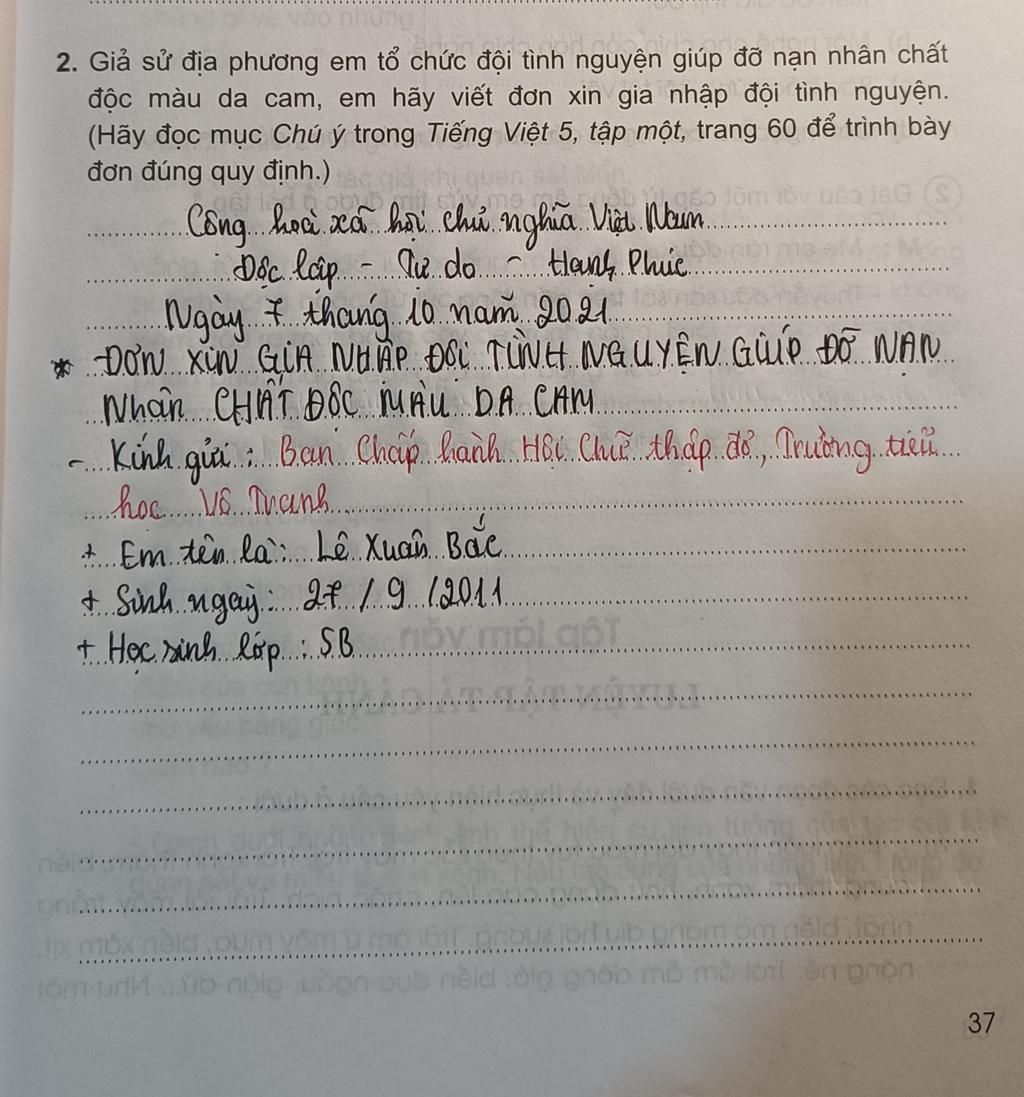 2. Giả sử địa phương em tổ chức đội tình nguyện giúp đỡ nạn nhân chất
độc màu da cam, em hãy viết đơn xin gia nhập đội tình nguyện.
(Hãy đọc mục Chú ý trong Tiếng Việt 5, tập một, trang 60 để trình bày
đơn đúng quy định.)
Công hoà xã hội chủ nghĩa Việt Nam
Độc lập - Tự do - Hạnh Phúc
Ngày 7 tháng 10 năm 2021
* ĐƠN XIN GIA NHẬP ĐỘI TÌNH NGUYỆN GIÚP ĐỠ NẠN
Nhân CHẤT ĐỘC MÀU DA CAM
- Kính gửi : Ban Chấp hành Hội Chữ thập đỏ, Trường tiểu
học Vô Tranh
+ Em tên là : Lê Xuân Bắc
+ Sinh ngày : 27 / 9 / 2011
+ Học sinh lớp : 5B
37